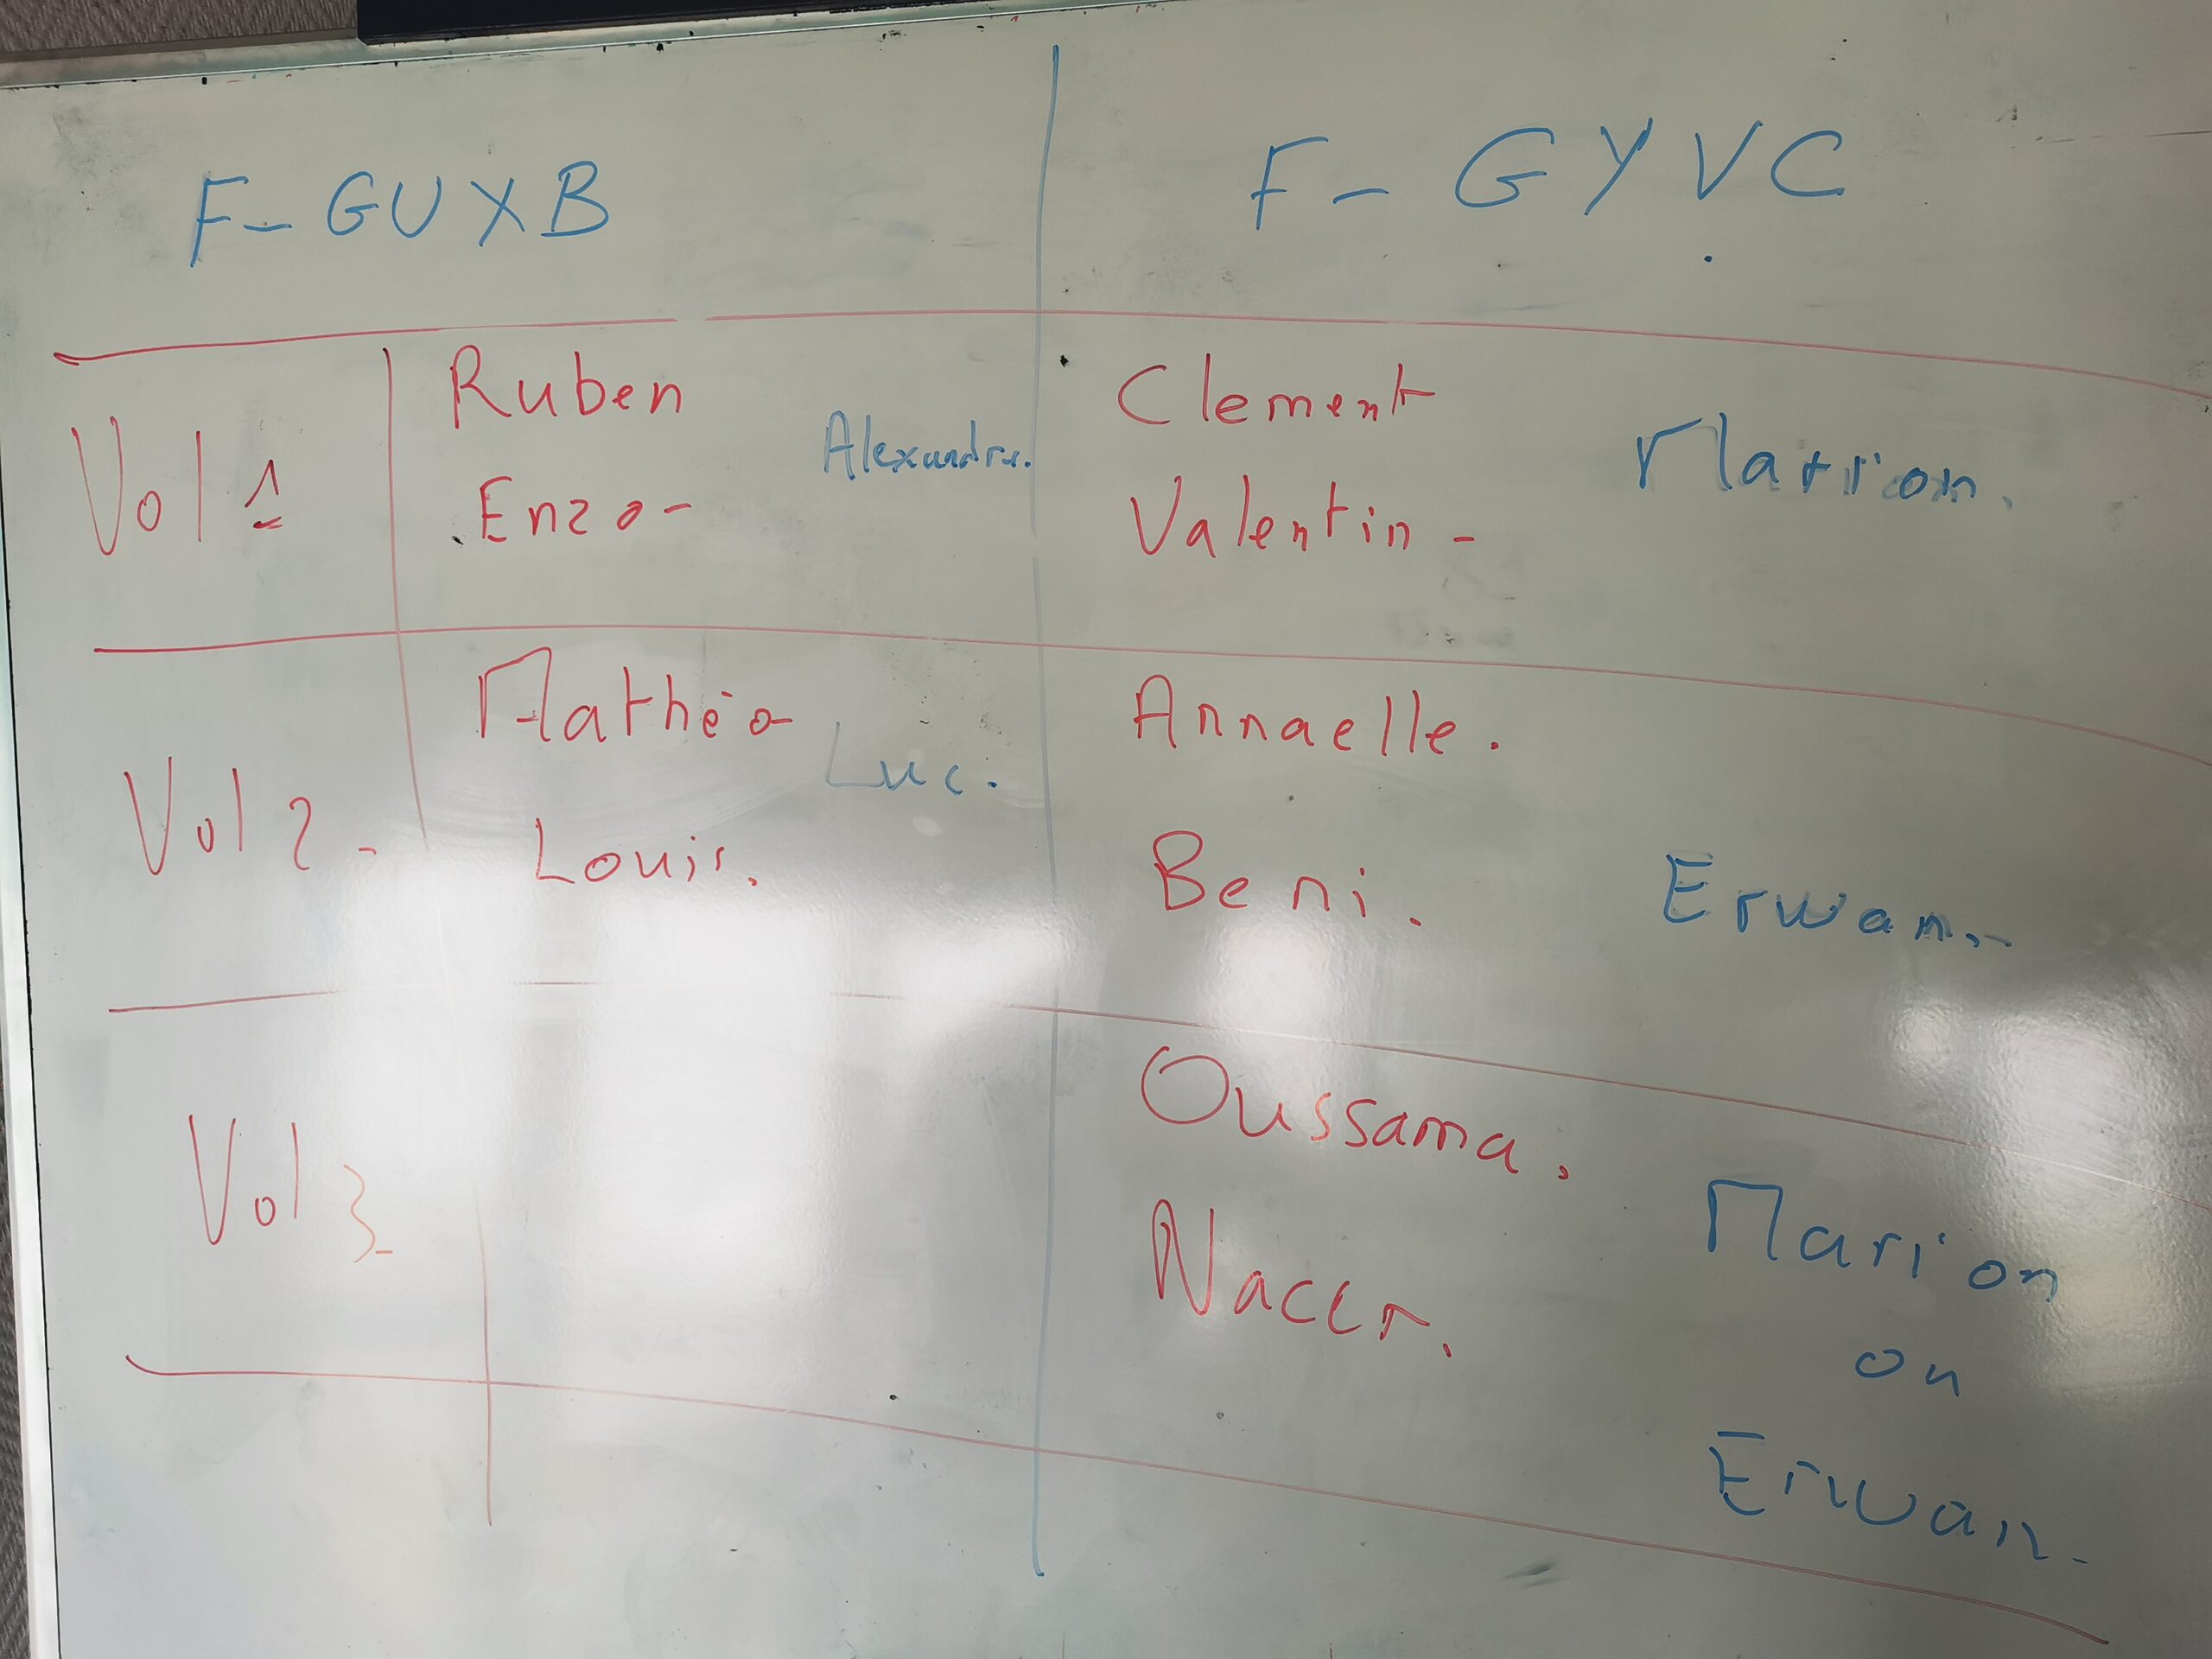 F- GUXB
F- GYVC
Vol 1
Ruben
Enzo-
Alexandre.
Clement
Valentin -
Marion.
Vol 2-
Mathéo
Louis.
Luc.
Annaelle.
Beni.
Erwan.
Vol 3
Oussama.
Nacer.
Marion
ou
Erwan.